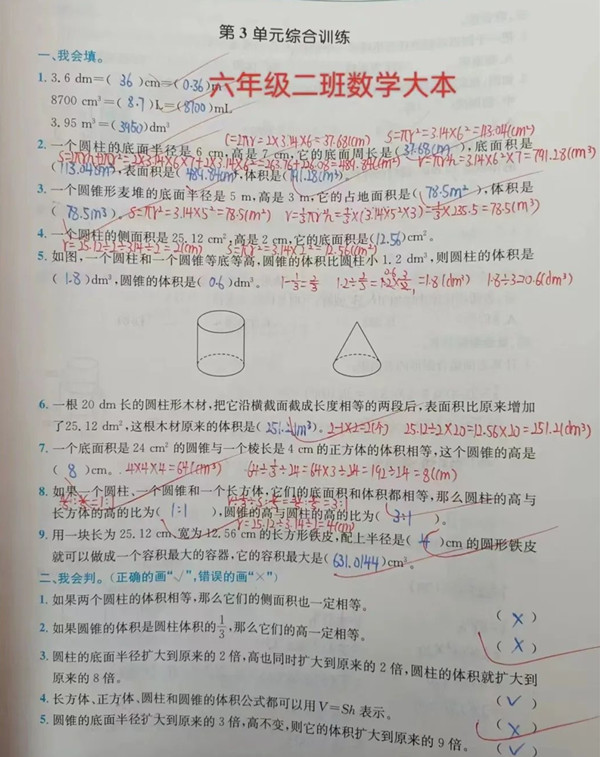 第3单元综合训练
一、我会填。
六年级二班数学大本
1. 3.6 dm=( 36 )cm=( 0.36 )m
8700 cm³=( 8.7 )L=( 8700 )mL
3.95 m³=( 3950 )dm³
C=2πr=2×3.14×6=37.68(cm) S=πr²=3.14×6²=113.04(cm²)
2. 一个圆柱的底面半径是 6 cm,高是 7 cm,它的底面周长是( 37.68cm ),底面积是
( 113.04cm² ),表面积是( 489.84cm² ),体积是( 791.28cm³ )。
V=πr²h=3.14×6²×7=791.28(cm³)
3. 一个圆锥形麦堆的底面半径是 5 m,高是 3 m,它的占地面积是( 78.5m² ),体积是
( 78.5m³ )。 S=πr²=3.14×5²=78.5(m²) V=⅓πr²h=⅓×(3.14×5²×3)=⅓×235.5=78.5(m³)
4. 一个圆柱的侧面积是 25.12 cm²,高是 2 cm,它的底面积是( 12.56 )cm²。
r=25.12÷2÷3.14÷2=2(cm) S=πr²=3.14×2²=12.56(cm²)
5. 如图,一个圆柱和一个圆锥等底等高,圆锥的体积比圆柱小 1.2 dm³,则圆柱的体积是
( 1.8 )dm³,圆锥的体积是( 0.6 )dm³。 1-⅓=⅔ 1.2÷⅔=1.2×3/2=1.8(dm³) 1.8÷3=0.6(dm³)
6. 一根 20 dm 长的圆柱形木材,把它沿横截面截成长度相等的两段后,表面积比原来增加
了25.12 dm²,这根木材原来的体积是( 251.2dm³ )。 2-1×2=2(个) 25.12÷2×20=12.56×20=251.2(dm³)
7. 一个底面积是 24 cm² 的圆锥与一个棱长是 4 cm 的正方体的体积相等,这个圆锥的高是
( 8 )cm。 4×4×4=64(cm³) 64÷⅓÷24=64×3÷24=192÷24=8(cm)
8. 如果一个圆柱、一个圆锥和一个长方体,它们的底面积和体积都相等,那么圆柱的高与
长方体的高的比为( 1:1 ),圆锥的高与圆柱的高的比为( 3:1 )。
r=25.12÷3.14÷2=4(cm)
9. 用一块长为 25.12 cm、宽为 12.56 cm 的长方形铁皮,配上半径是( 4 )cm 的圆形铁皮
就可以做成一个容积最大的容器,它的容积最大是( 631.0144 )cm³。
二、我会判。(正确的画“√”,错误的画“×”)
1. 如果两个圆柱的体积相等,那么它们的侧面积也一定相等。 ( × )
2. 如果圆锥的体积是圆柱体积的⅓,那么它们的高一定相等。 ( × )
3. 圆柱的底面半径扩大到原来的 2 倍,高也同时扩大到原来的 2 倍,圆柱的体积就扩大到
原来的 8 倍。 ( √ )
4. 长方体、正方体、圆柱和圆锥的体积公式都可以用 V=Sh 表示。 ( × )
5. 圆锥的底面半径扩大到原来的 3 倍,高不变,则它的体积扩大到原来的 9 倍。 ( √ )